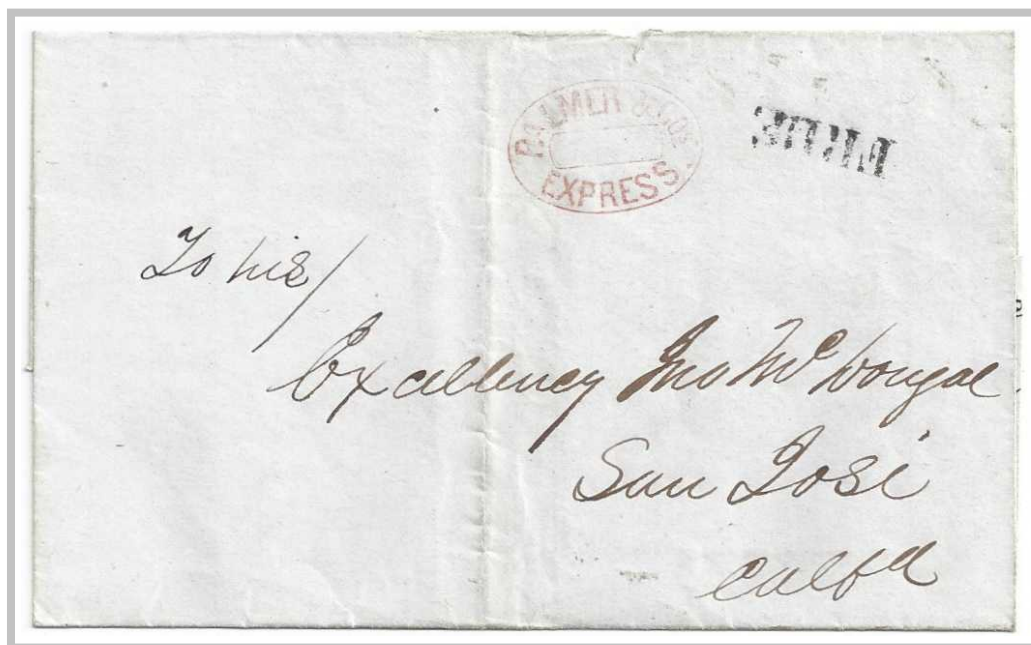 PALMER & CO'S
EXPRESS.
FREE
To his/
Excellency Jno Mc Dougal
San José
Calfa